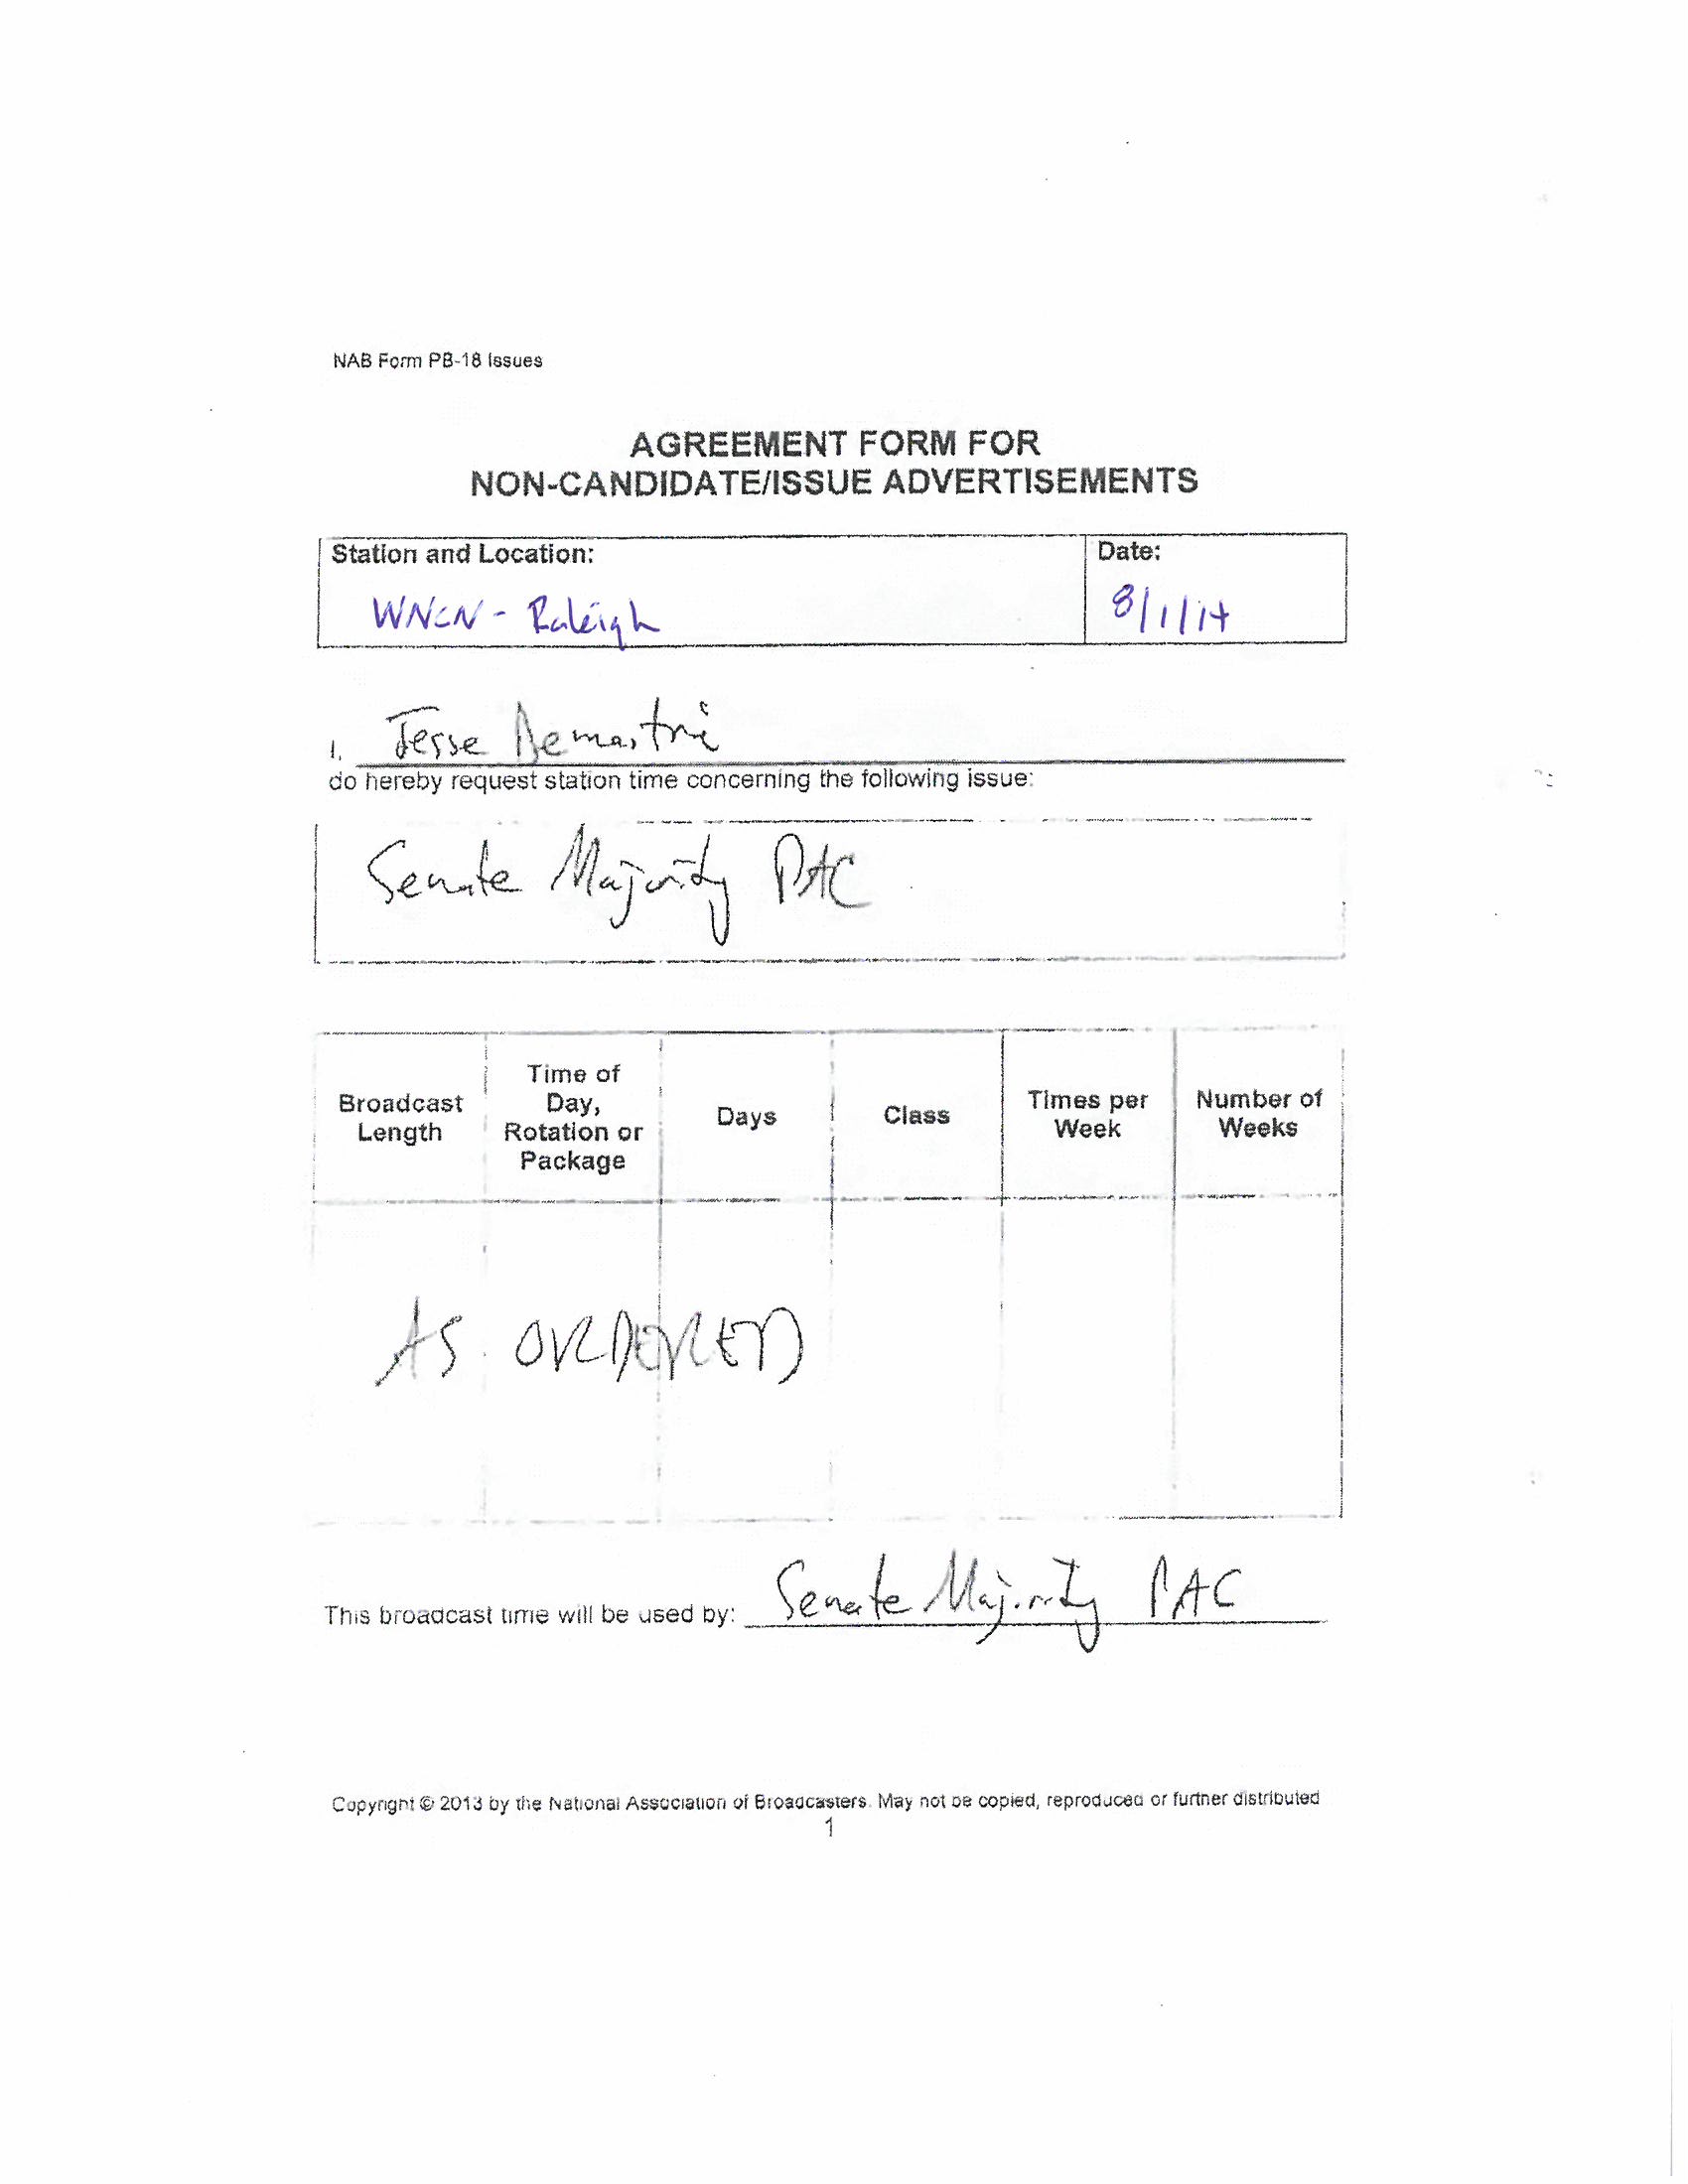 NAB Form PB-18 Issues
AGREEMENT FORM FOR
NON-CANDIDATE/ISSUE ADVERTISEMENTS
Station and Location:
Date:
WNCN - Raleigh
8/1/14
I, Jesse Demastrie
do hereby request station time concerning the following issue:
Senate Majority PAC
Broadcast Length
Time of Day, Rotation or Package
Days
Class
Times per Week
Number of Weeks
AS ORDERED
This broadcast time will be used by: Senate Majority PAC
Copyright © 2013 by the National Association of Broadcasters. May not be copied, reproduced or further distributed
1